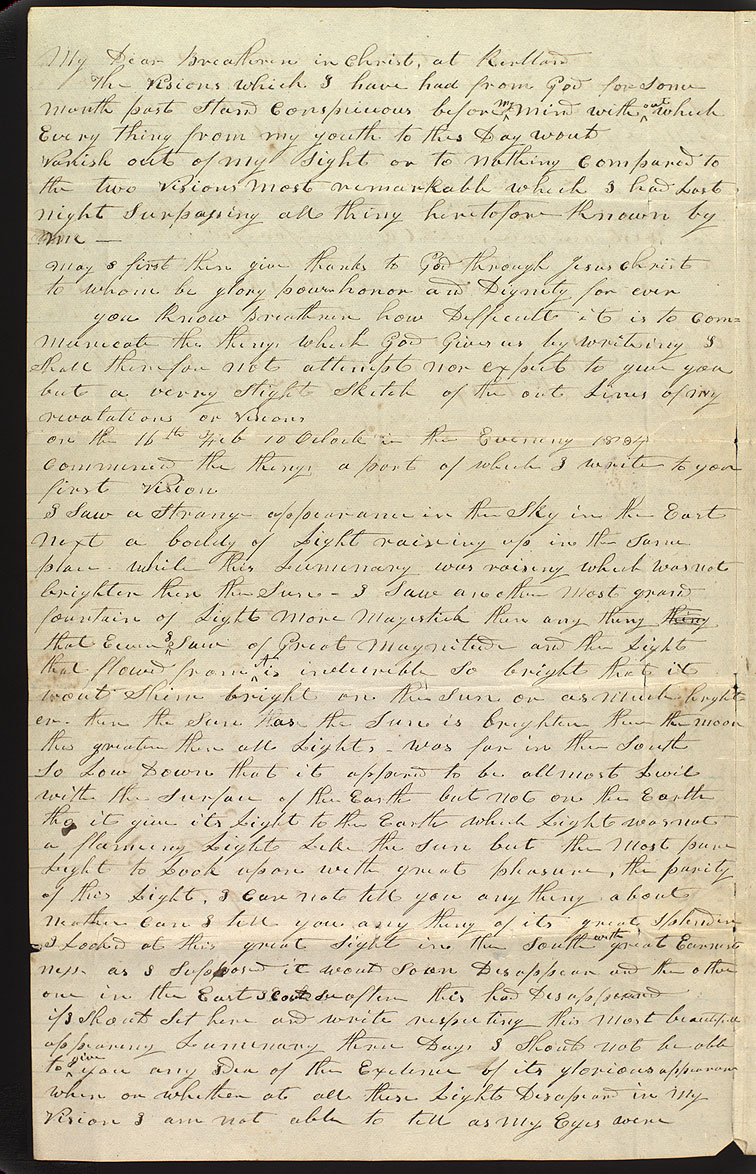 My Dear Breathren in Christ, at Kirtland
The Visions which I have had from God for Some
month past Stand Conspicuous before my mind with out which
Every thing from my youth to this Day wout
Vanish out of my Sight or to nothing Compared to
the two Visions most remarkable which I had Last
night Surpassing all thing heretofore Known by
me —
may I first then give thanks to God through Jesus Christ
to whom be glory power honor and Dignity for ever
you Know Breathren how Difficult it is to Com=
municate the things which God Gives us by writeing I
Shall therefore not attempt nor expect to give you
but a verry Slight Sketch of the out Lines of my
revolations or Visions
on the 16th Feb 10 Oclock in the Evening 1834
Commenced the things a part of which I write to you
first Vision
I Saw a Strang appearance in the Sky in the East
next a boddy of Light raiseing up in the Same
place. while this Lumenary was raising which was not
brighter then the Sun - I Saw another most grand
fountain of Light more Magestick then any thing thing
that Ever I Saw of Great Magnitede and the Light
that flowd from it is indecrible So bright that it
wout Shine bright on the Sun or as much bright
er then the Sun has the Sun is brighter then the moon
this greater then all Lights - was far in the South
So Low Down that it appered to be allmost Livil
with the Surface of the Earth but not on the Earth
tho it give its Light to the Earth which Light was not
a flameing Light Like the Sun but the most pure
Light to Look upon with great pleasure, the purity
of this Light, I Can not tell you any thing about
neather Can I tell you any thing of its great Splender
I Looked at this great Sight in the South with great Earnest
ness as I Supposed it wout Soon Disappear and the other
one in the East I Cout See after this had Disappeared
if I Shout Set here and write respecting this most beautifull
appearing Lumenary three Days I Shout not be able
to give you any Idea of the Exelence of its glorious apperance
when or whether at all these Lights Disapeard in my
Vision I am not able to tell as my Eyes were